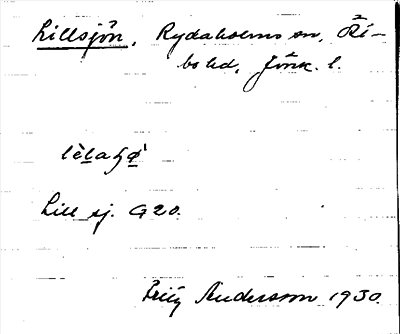 Lillsjön, Rydaholms sn, Östbo hd, Jönk. l.
lèlaɧø̀
Lill sj. G20.
Fritz Andersson 1930.